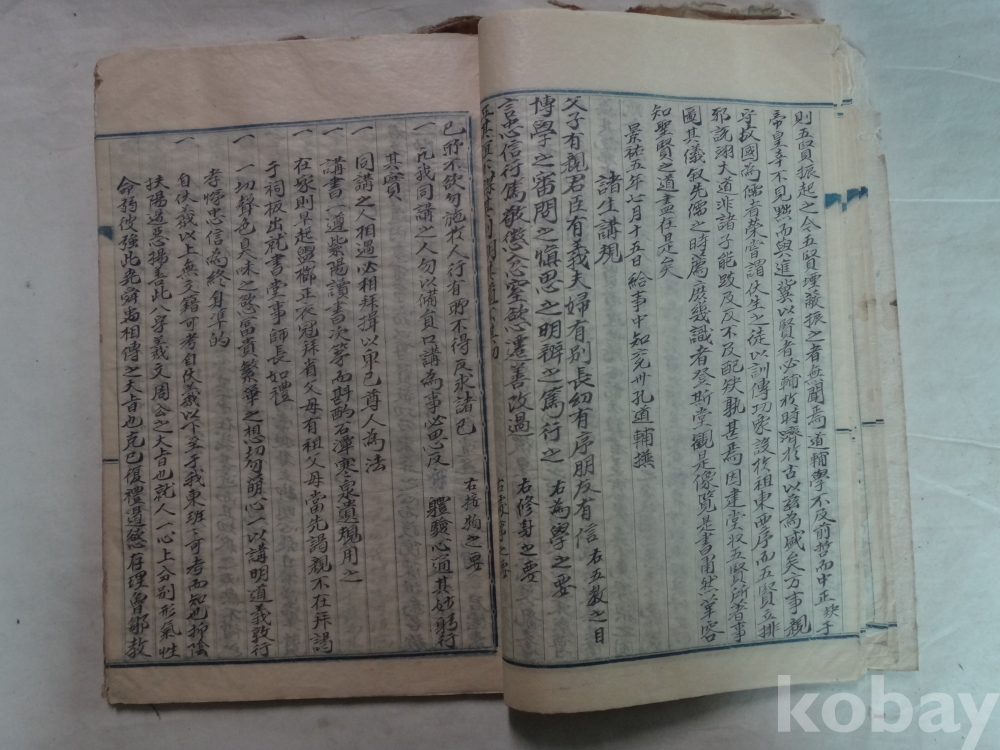 則五賢振起之今五賢堙蔽振之者無聞焉道輔學不及前哲而中正缺于
帝皇幸不見黜而與進冀以賢者必輔於時濟於古以玆為感矣方事親
守故國為儒者榮嘗謂伏生之徒以訓傳功象設於祖東西序而五賢立排
邪說翊大道非諸子能跂及反不及配缺孰甚焉因建堂收五賢所著事
圖其儀叙先儒之時薦庶幾識者登斯堂觀是像覽是書肅然革容
知聖賢之道盡在是矣
景祐五年七月十五日給事中知兗州孔道輔撰
諸生講規
父子有親君臣有義夫婦有別長幼有序朋友有信 右五敎之目
博學之審問之愼思之明辨之篤行之 右為學之要
言忠信行篤敬懲忿窒慾遷善改過 右修身之要
己所不欲勿施於人行有所不得反求諸己 右接物之要
一 凡我同講之人勿以備員口講為事必思反 軆驗心通其妙躬行
其實
一 同講之人相遇必相拜揖以卑己尊人為法
一 講書一遵紫陽讀書次第而斟酌石潭寒泉遺規用之
一 在家則早起盥櫛正衣冠拜省父母有祖父母當先謁親不在拜謁
于祠板出就書堂事師長如禮
一 一切聲色臭味之慾富貴繁華之想切勿萌心一以講明道義敦行
孝悌忠信為終身準的
一 自伏羲以上無文籍可考自伏羲以下至于我東班班可考而知也抑陰
扶陽遏惡揚善此八字羲文周公之大旨也就人一心上分別形氣性
命狥彼強此堯舜禹相傳之大旨也克己復禮遏慾存理魯鄒故
kobay